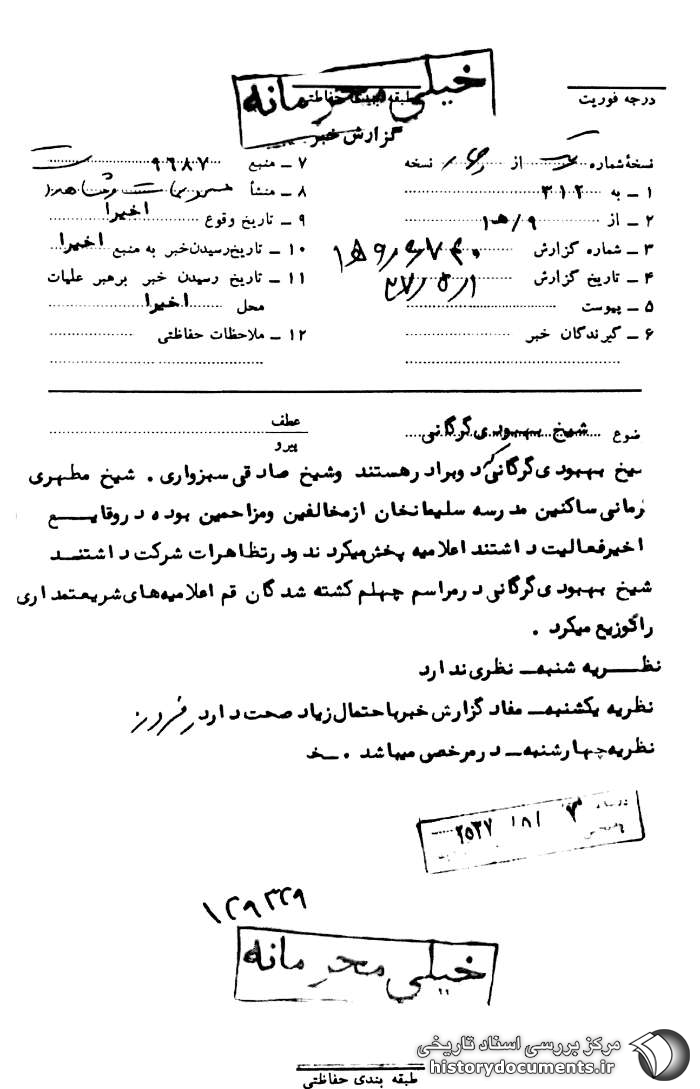 خیلی محرمانه
درجه فوریت
طبقه بندی حفاظتی
گزارش خبر
نسخهٔ شماره از نسخه
۱ ـ به ۳۱۲
۲ ـ از ۹/ﻫ۱
۳ ـ شماره گزارش
۴ ـ تاریخ گزارش
۵ ـ پیوست
۶ ـ گیرندگان خبر
۷ ـ منبع ۹۶۸۷
۸ ـ منشأ
۹ ـ تاریخ وقوع اخیرا
۱۰ ـ تاریخ رسیدن خبر به منبع اخیرا
۱۱ ـ تاریخ رسیدن خبر برهبر عملیات
محل اخیرا
۱۲ ـ ملاحظات حفاظتی
ضوع شیخ بهبودی گرگانی
عطف
پیرو
یخ بهبودی گرگانی که دوبرادرهستند وشیخ صادقی سبزواری . شیخ مطهری
زمانی ساکنین مدرسه سلیمانخان ازمخالفین ومزاحمین بوده دروقایع
اخیرفعالیت داشتند اعلامیه پخش میکردند ودرتظاهرات شرکت داشتند
شیخ بهبودی گرگانی درمراسم چهلم کشته شدگان قم اعلامیه های شریعتمداری
راتوزیع میکرد .
نظریه شنبه ـ نظری ندارد
نظریه یکشنبه ـ مفاد گزارش خبربا احتمال زیاد صحت دارد
نظریه چهارشنبه ـ درمرخصی میباشد .
۲۵۳۷ /۸/ ۳
۱۲۹۳۲۹
خیلی محرمانه
مرکز بررسی اسناد تاریخی
historydocuments.ir
طبقه بندی حفاظتی